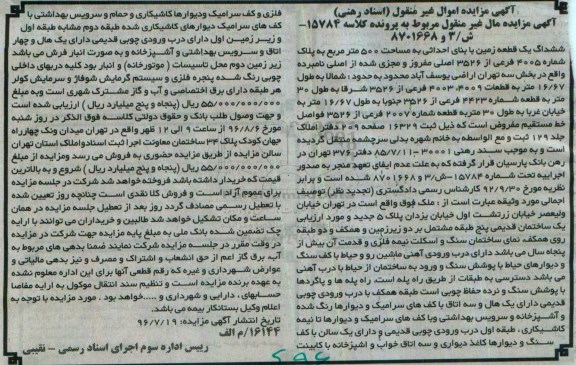 آگهی مزایده اموال غیر منقول (اسناد رهنی)
آگهی مزایده مال غیر منقول مربوط به پرونده کلاسه ۱۵۷۸۴-
ش/۳ و ۸۷۰۱۶۶۸
ششدانگ یک قطعه زمین با بنای احداثی به مساحت ۵۰۰ متر مربع به پلاک
شماره ۴۰۰۵ فرعی از ۳۵۲۶ اصلی مفروز و مجزی شده از اصلی نامبرده
واقع در بخش سه تهران اراضی یوسف آباد محدود به حدود: شمالا به طول
۱۶/۶۷ متر به قطعات ۴۰۰۳ و ۴۰۰۹ فرعی از ۳۵۲۶ شرقا به طول ۳۰
متر به قطعه شماره ۴۴۲۳ فرعی از ۳۵۲۶ جنوبا به طول ۱۶/۶۷ متر به
خیابان غربا به طول ۳۰ متر به قطعه شماره ۲۰۰۷ فرعی از ۳۵۲۶ فواصل
خط مستقیم مفروض است که ذیل ثبت ۱۶۳۲۹ صفحه ۲۰۹ دفتر املاک
جلد ۱۲۹ ثبت و مع الواسطه به خانم شهره یدلی سرچشمه منتقل گردیده
است و به موجب سند رهنی ۳۰۰۰۱-۸۵/۷/۱۱ دفتر ۳۷۶ تهران در
رهن بانک پارسیان قرار گرفته که به علت عدم ایفای تعهد منجر به صدور
اجراییه تحت شماره ۱۵۷۸۴-ش/۳ و ۸۷۰۱۶۶۸ شده است و برابر
نظریه مورخ ۹۲/۹/۳۰ کارشناس رسمی دادگستری (تجدید نظر) توصیف
اجمالی مورد وثیقه عبارت است از: ملک فوق واقع است در تهران خیابان
ولیعصر خیابان زرتشت اول خیابان یزدان پلاک ۵ جدید و مورد ارزیابی
یک ساختمان قدیمی پنج طبقه مشتمل بر دو زیرزمین و همکف و دو طبقه
روی همکف نمای ساختمان سنگ و اسکلت نیمه فلزی و قدمت آن بیش از
پنجاه سال می باشد دارای درب ورودی آهنی ماشین رو و حیاط با کف سنگ
و دیوارهای حیاط با پوشش سنگ و ورود به ساختمان از حیاط با درب آهنی
می باشد دسترسی به طبقات از طریق راه پله است، راه پله ها و پاگردها
با پوشش سنگ و نرده حفاظ چوبی است طبقه همکف با درب ورودی چوبی
قدیمی دارای یک هال و سه اتاق با کف های سرامیک و دیوارها رنگ شده
و آشپزخانه و سرویس بهداشتی و با کف های سرامیک و دیوارها تا نیمه
کاشیکاری، طبقه اول درب ورودی چوبی قدیمی و دارای یک سالن با کف
سنگ و دیوارها کاغذ دیواری و سه اتاق خواب و آشپزخانه با کابینت
فلزی و کف سرامیک و دیوارها کاشیکاری و حمام و سرویس بهداشتی با
کف های سرامیک دیوارهای کاشیکاری شده طبقه دوم مشابه طبقه اول
و زیر زمین اول دارای درب ورودی چوبی قدیمی دارای یک هال و چهار
اتاق و سرویس بهداشتی و آشپزخانه و به صورت انبار فرش می باشد
زیر زمین دوم محل تاسیسات (موتورخانه) و انبار بود کلیه دربهای داخلی
چوبی رنگ شده پنجره فلزی و سیستم گرمایش شوفاژ و سرمایش کولر
هر طبقه دارای برق اختصاصی و آب و گاز مشترک شهری است و به مبلغ
۵۵/۰۰۰/۰۰۰/۰۰۰ ریال (پنجاه و پنج میلیارد ریال) ارزیابی شده است
و جهت وصول طلب بانک و حقوق دولتی کلاسه فوق الذکر در روز شنبه
مورخ ۹۶/۸/۶ از ساعت ۹ الی ۱۲ ظهر واقع در تهران میدان ونک چهارراه
جهان کودک پلاک ۳۴ ساختمان معاونت اجرا ثبت اسناد و املاک استان تهران
سالن مزایده از طریق مزایده حضوری به فروش می رسد و مزایده از مبلغ
۵۵/۰۰۰/۰۰۰/۰۰۰ ریال (پنجاه و پنج میلیارد ریال) شروع و به بالاترین
قیمت که خریدار داشته باشد فروخته خواهد شد شرکت در جلسه مزایده
برای عموم آزاد است و فروش کلا نقدی است چنانچه روز تعیین شده
با تعطیل رسمی مصادف گردد روز بعد از تعطیل جلسه مزایده در همان
ساعت و مکان تشکیل خواهد شد طالبین و خریداران می توانند با ارایه
چک تضمین شده بانک ملی به مبلغ پایه مزایده جهت شرکت در مزایده
در وقت مقرر در جلسه مزایده شرکت نمایند ضمنا بدهی های مربوط به
آب، برق گاز اعم از حق انشعاب و اشتراک و مصرف و نیز بدهی مالیاتی و
عوارض شهرداری و غیره که رقم قطعی آنها برای این اداره معلوم نشده
به عهده برنده مزایده است و تنظیم سند انتقال موکول به ارایه مفاصا
حسابهای، دارایی و شهرداری و ....خواهد بود. مورد مزایده با توجه به
اعلام وکیل بستانکار بیمه می باشد.
تاریخ انتشار آگهی مزایده: ۹۶/۷/۱۹
۱۶۱۴۴/م الف
رییس اداره سوم اجرای اسناد رسمی - نقیبی